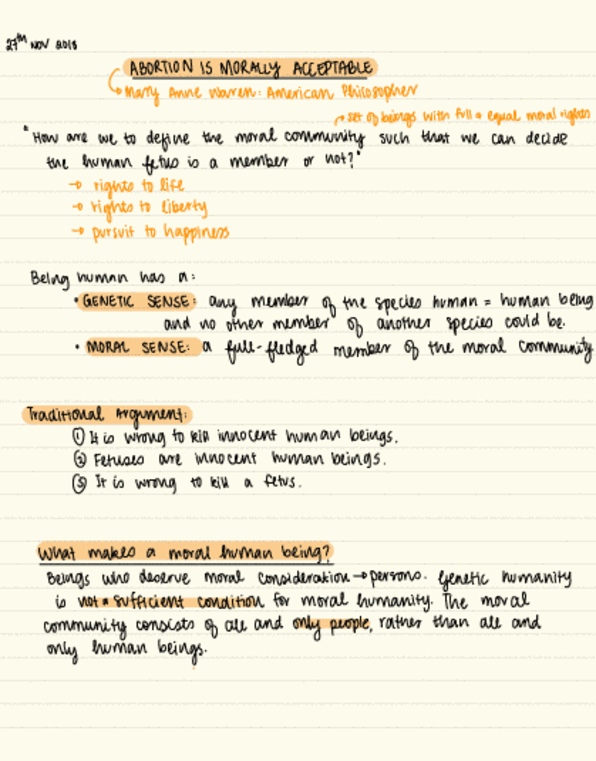 27TH NOV 2018
ABORTION IS MORALLY ACCEPTABLE
Mary Anne Warren: American Philosopher
→ set of beings with full & equal moral rights
"How are we to define the moral community such that we can decide
the human fetus is a member or not?"
→ rights to life
→ rights to liberty
→ pursuit to happiness
Being human has a:
• GENETIC SENSE: any member of the species human = human being
and no other member of another species could be.
• MORAL SENSE: a full-fledged member of the moral community
Traditional Argument:
① It is wrong to kill innocent human beings.
② Fetuses are innocent human beings.
③ It is wrong to kill a fetus.
What makes a moral human being?
Beings who deserve moral consideration → persons. Genetic humanity
is not a sufficient condition for moral humanity. The moral
community consists of all and only people, rather than all and
only human beings.